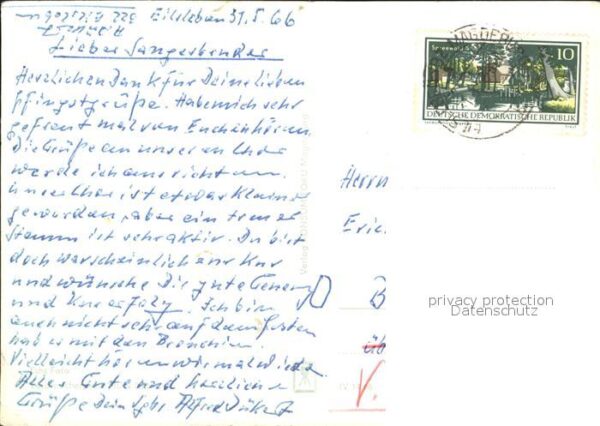 Eilsleben 31.5.66
Lieber Sangesbruder
Herzlichen Dank für Deine lieben
Pfingstgrüße. Habe mich sehr
gefreut mal von Euch zu hören
Die Grüße an unseren Chor
werde ich ausrichten.
Unser Chor ist etwas kleiner
geworden, aber ein treuer
Stamm ist sehr aktiv. Du bist
doch warscheinlich zur Kur
und wünsche Dir gute Genes
und Kurerfolg. Ich bin
auch nicht sehr auf dem
hab es mit den Bronchien.
Vielleicht hören wir mal wieder
Alles Gute und herzliche
Grüße Dein Sgbr. Alfred
Herrn
Eric
B
üb
V.
Spreewald
10
DEUTSCHE DEMOKRATISCHE REPUBLIK
MAGDEBURG
Verlag KONSUM-FOKU Magdeburg
Foto
privacy protection
Datenschutz